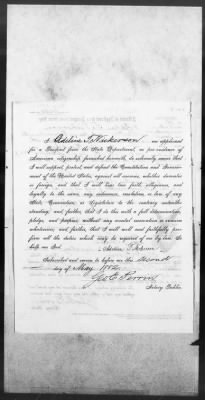 I Adeline T. Nickerson an applicant
for a Passport from the State Department, on pre-evidence of
American citizenship furnished herewith, do solemnly swear that
I will support, protect, and defend the Constitution and Govern-
ment of the United States, against all enemies, whether domestic
or foreign, and that I will bear true faith, allegiance, and
loyalty to the same, any ordinance, resolution, or law of any
State, Convention, or Legislature to the contrary notwith-
standing; and further, that I do this with a full determination,
pledge, and purpose, without any mental reservation or evasion
whatsoever; and further, that I will well and faithfully per-
form all the duties which may be required of me by law. So
help me God.
Adeline T.
Subscribed and sworn to before me this Second
day of May 1882
Geo C Perrin
Notary Public